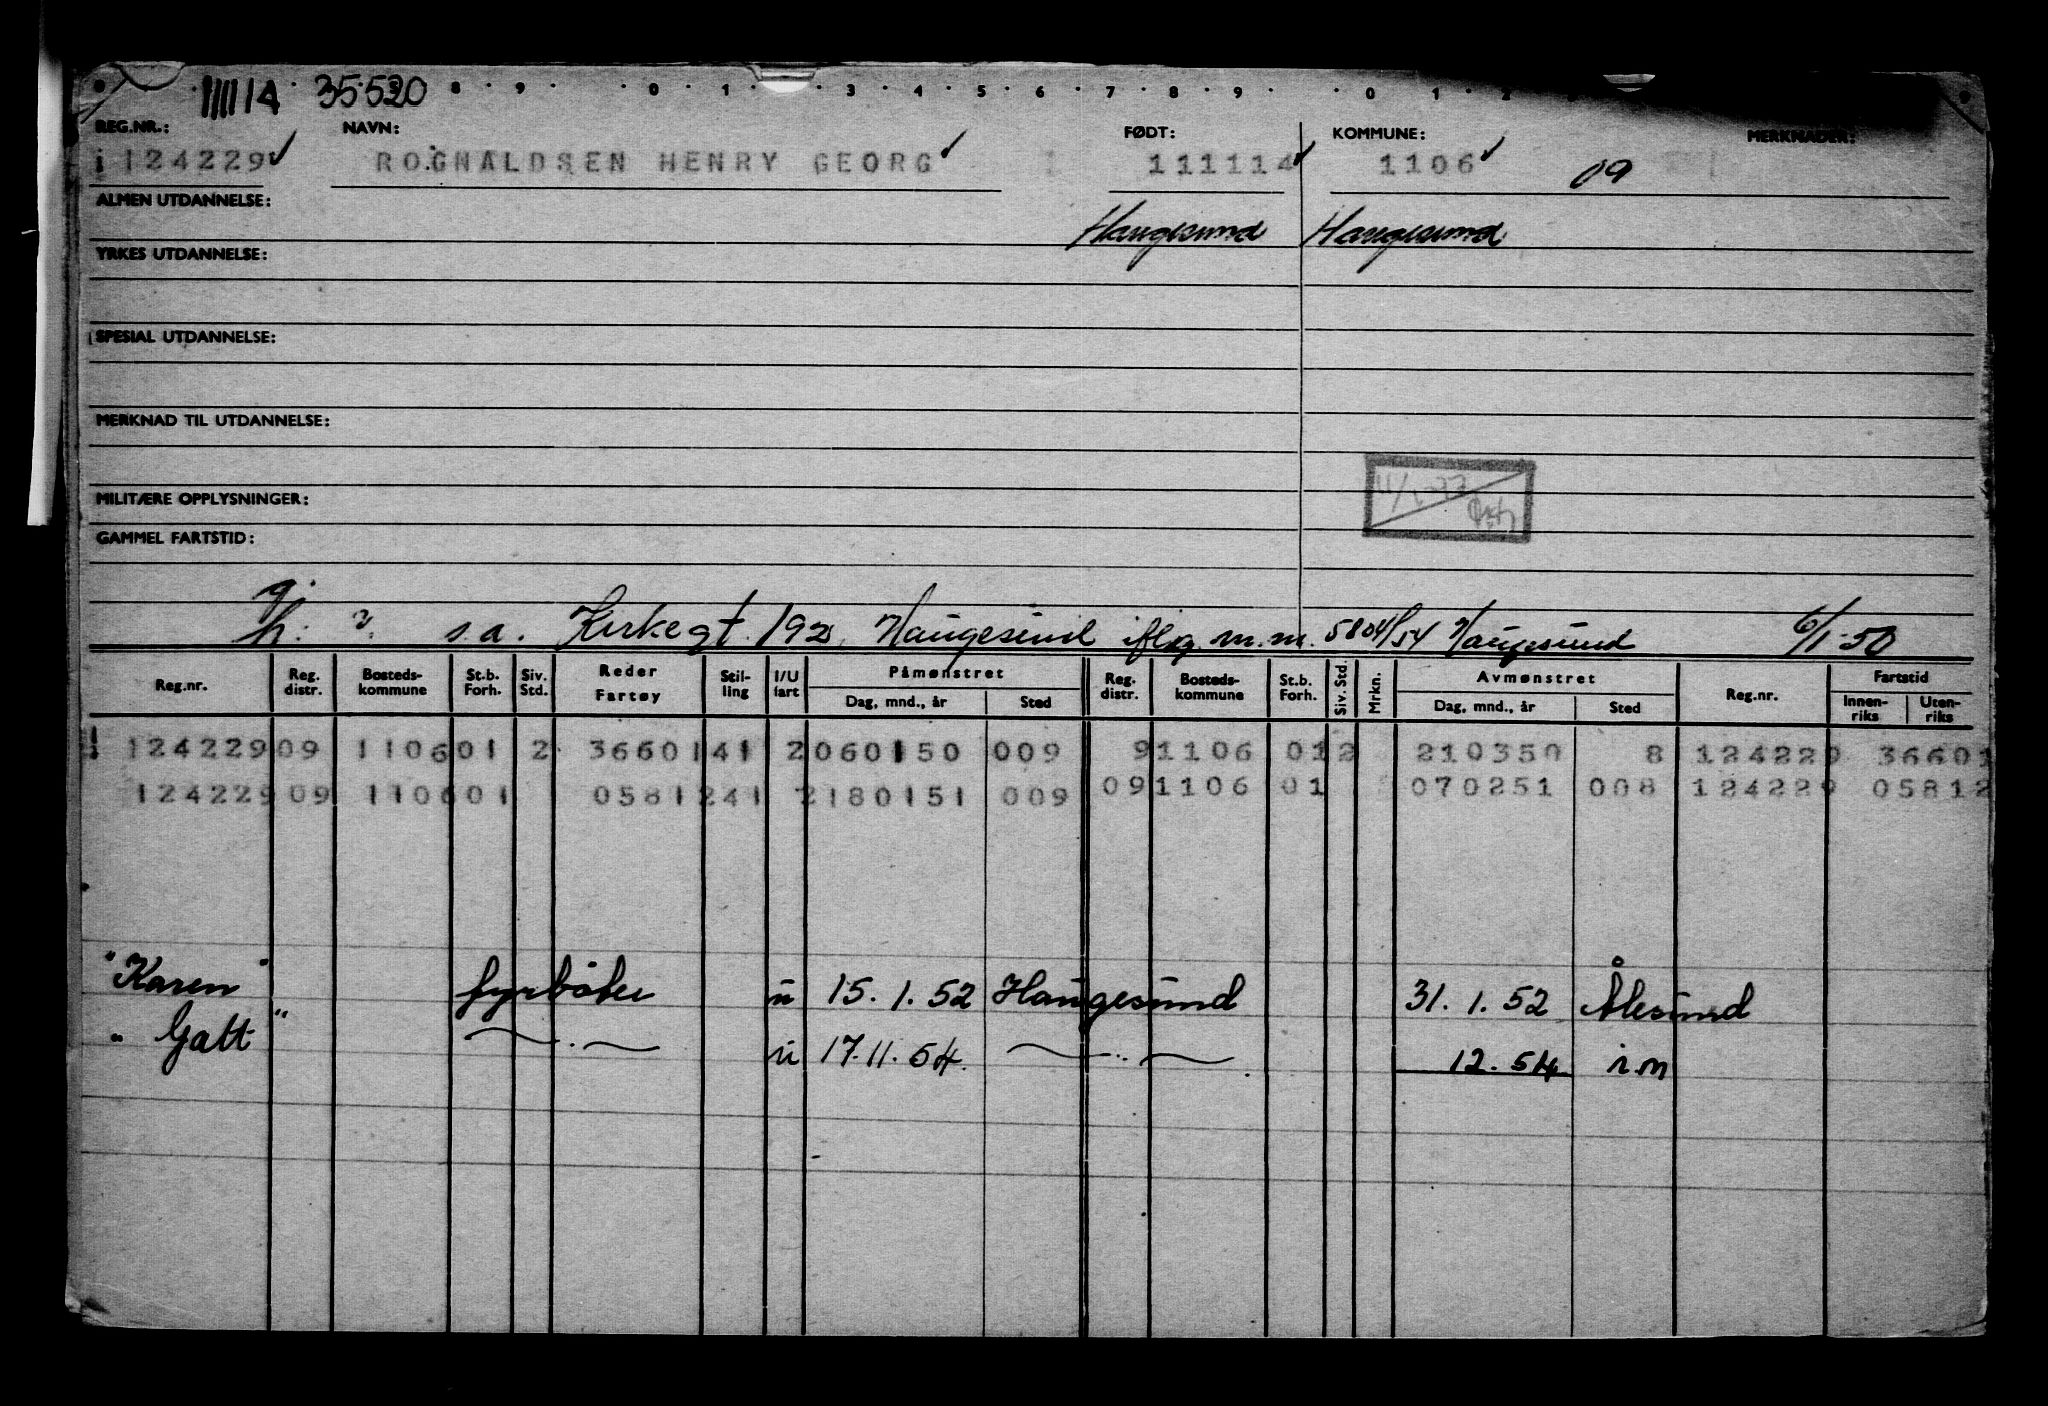 111114 35520 8 9 0 1 3 4 5 6 7 8 9 0 1 2
REG.NR.: NAVN: FØDT: KOMMUNE: MERKNADER:
124229 ROGNALDSEN HENRY GEORG 111114 1106 09
ALMEN UTDANNELSE:
Haugesund Haugesund
YRKES UTDANNELSE:
SPESIAL UTDANNELSE:
MERKNAD TIL UTDANNELSE:
MILITÆRE OPPLYSNINGER:
GAMMEL FARTSTID:
g.
h: s.a. Kirkegt. 192, Haugesund iflg. m.m. 5804/54 Haugesund 6/1-50
Reg.nr. Reg. distr. Bosteds-kommune St.b. Forh. Siv. Std. Reder Fartøy Stil-ling I/U fart Påmønstret Dag, mnd., år Sted Reg. distr. Bosteds-kommune St.b. Forh. Siv. Std. Mrkn. Avmønstret Dag, mnd., år Sted Reg.nr. Fartstid Innen-riks Uten-riks
124229 09 1106 01 2 36601 41 2 060150 009 9 1106 01 2 210350 8 124229 36601
124229 09 1106 01 05812 41 2 180151 009 09 1106 01 070251 008 124229 05812
"Karen" fyrbøter u 15.1.52 Haugesund 31.1.52 Ålesund
"Gatt" —..— u 17.11.54. —..— 12.54 i.m